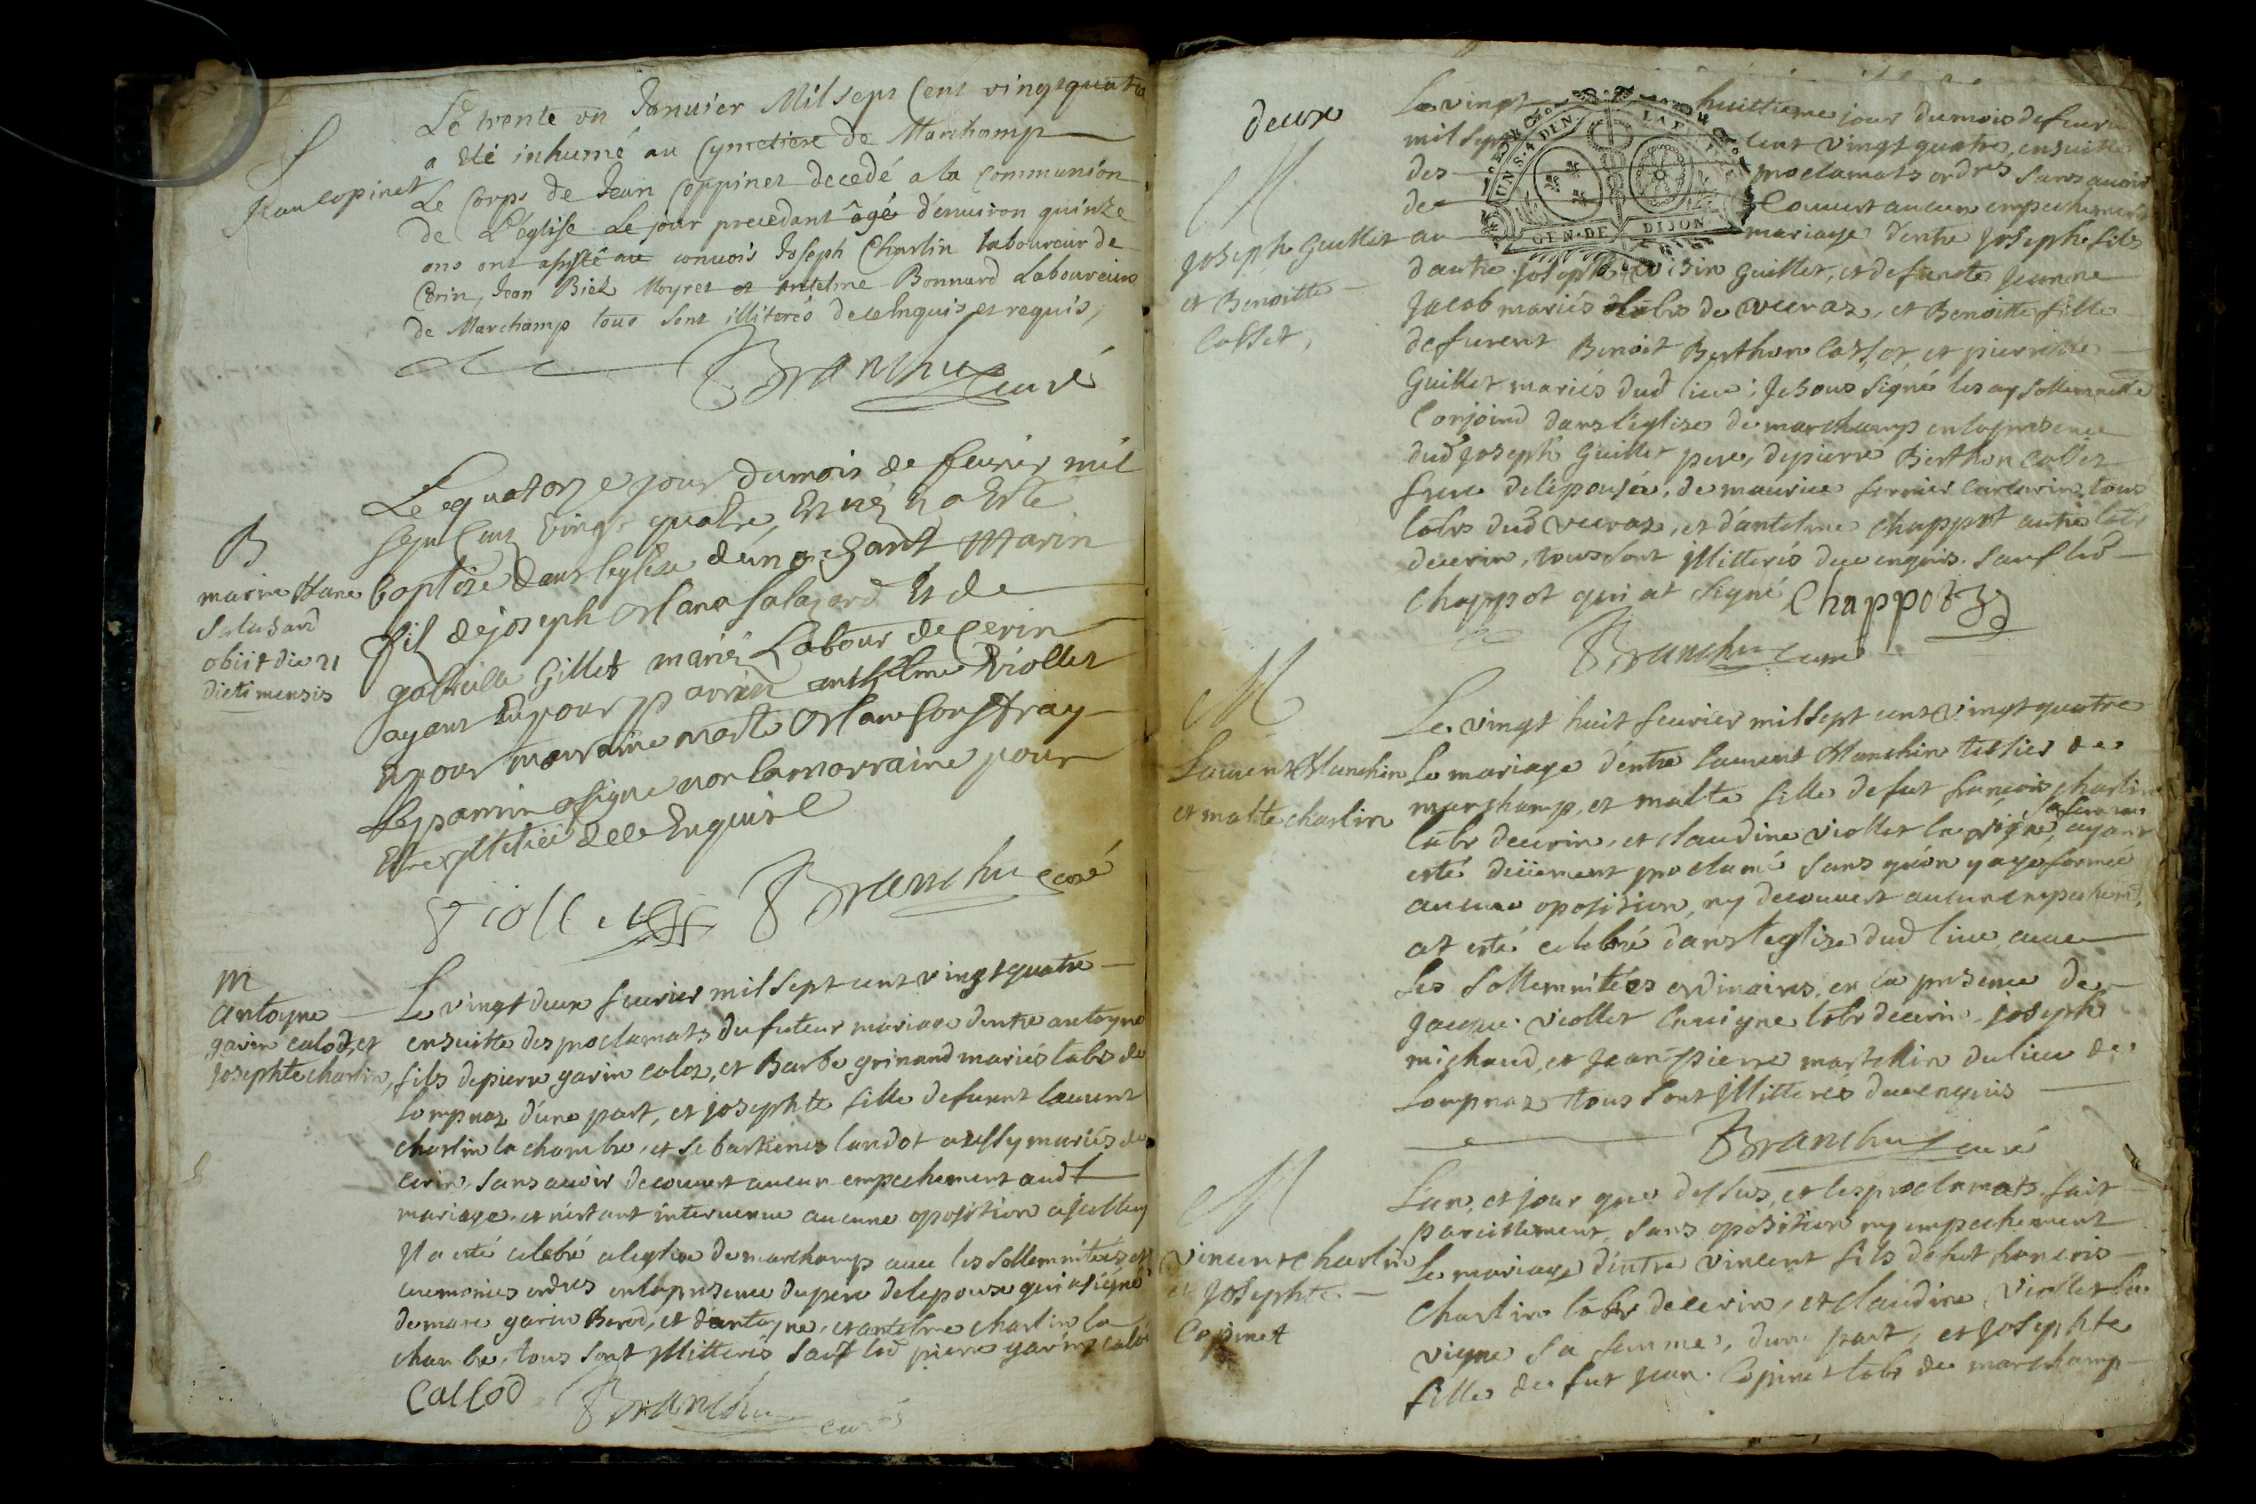 S
Jean copinet
Le trente un Janvier Mil sept Cent vingt quatre
a été inhumé au Cymetiere de Marchamp
Le Corps de Jean Coppinet decedé a la Communion
de L'Eglise Le jour precedant âgé d'environ quinze
ans ont assisté au convois Joseph Charlin laboureur de
Cerin, Jean Biel Moyret et Anselme Bonnard Laboureurs
de Marchamp tous sont illiterés de ce Enquis et requis,
Branchu curé
B
marin Hane
Salazard
obiit die 21
dicti mensis
Le quatorze jour du mois de feurier mil
sept Cent vingt quatre, Est né Et a Esté
baptize dans leglise de marchant Marin
fil de joseph Salazard Et de
gabriella Gillet mariez Labour de Cerin
ayant Eu pour parrin anthelme Viollet
Et pour marraine
Le parrin a signe non la marraine pour
Estre Illiteré de ce Enquise
Viollet Branchu curé
M
antoyne
gavin calod, et
josephte charlin,
Le vingt deux feurier mil sept cent vingt quatre
ensuitte des proclamats du futeur mariage dentre antoyne
fils de pierre gavin caloz, et Barbe grinand mariés labrs de
Lompnaz d'une part, et josephte fille de furent laurent
charlin la chambre, et Sebastienes landot aussy mariés de
cerin, sans avoir decouvert aucun empechement audt
mariage, et n'estant intervenue aucune oposition a jcelluy
Jl a esté celebré a leglise de marchamp avec les sollemnitées, et
ceremonies ordres en la presence du pere de lepoux qui a signé
de marc gavin Berod, et d'antoyne, et antelme charlin la
chambre, tous sont Illitterés sauf led pierre gavin calod
Callod Branchu curé
deux
M
Joseph Guillet
et Benoitte
Collet,
Le vingt huittieme jour du mois de feurier
mil sept cent vingt quatre, ensuitte
des proclamats ordres sans avoir
de couvert aucun empechement
au mariage d'entre Joseph fils
dautre joseph Guillet, et defuncte Jeanne
Jacob mariés labrs de veeraz, et Benoitte fille
de furent Benoit Berthon Collet, et pierrette
Guillet mariés dud lieu; Je sous signé les ay sollemnelle
Conjoind dans l'eglise de marchamp en la presence
dud Joseph Guillet pere, de pierre Berthon Collet
frere de lepousée, de maurice tous
labrs dud veeraz, et d'antelme Chappot autre labr
de cerin, tous sont Illitterés de ce enquis. sauf led
Chappot qui at signé Chappot
Branchu curé
M
Laurent Hanchin
et marte charlin
Le vingt huit feurier mil sept cent vingt quatre
Le mariage d'entre laurent Hanchin tessier de
marchamp, et marte fille de fut francois charlin
labr de cerin, et Claudine viollet la vigne, sa femme ayant
esté düement proclamé sans qu'on y aye formée
aucune oposition, ny decouvert aucun empechemt,
at esté celebré dans l'eglise dud lieu avec
Les sollemnitées ordinaires, en la presence de
jacque viollet lavigne labr de cerin, joseph
michaud, et Jean-pierre martellin du lieu de
Lompnaz tous sont Illitterés de ce enquis
Branchu curé
M
Vincent Charlin
et Josephte
Copinet
L'an, et jour que dessus, et les proclamats fait
pareillement, sans oposition ny empechement
Le mariage d'entre vincent fils de fut francois
charlin labr de cerin, et claudine viollet la
vigne sa femme, dune part, et josephte
fille de fut jean Copinet labr de marchamp